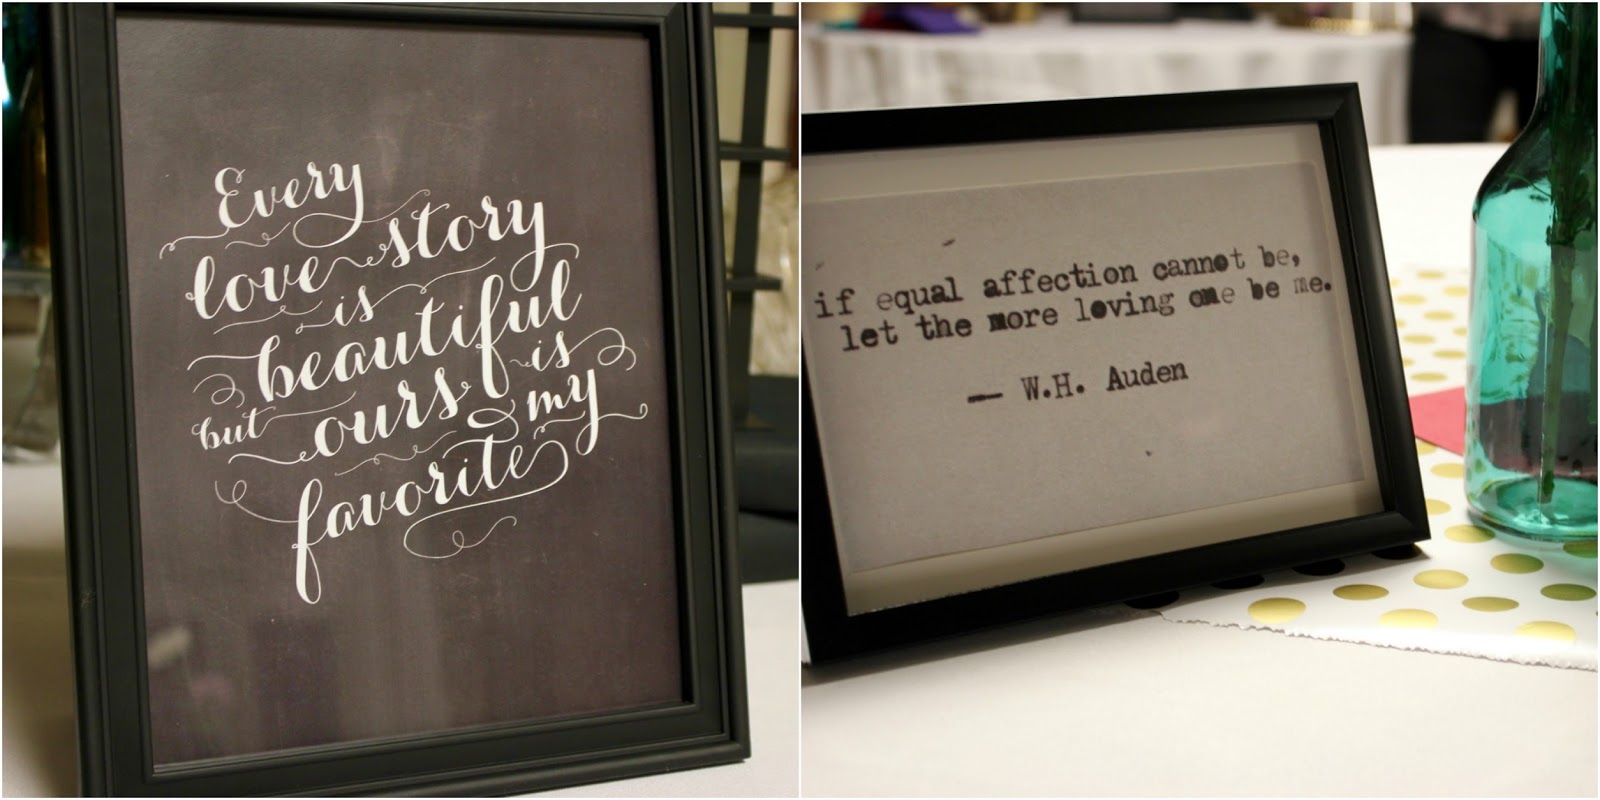 Every
love story
is
beautiful
but ours is
my
favorite
if equal affection cannot be,
let the more loving one be me.
— W.H. Auden